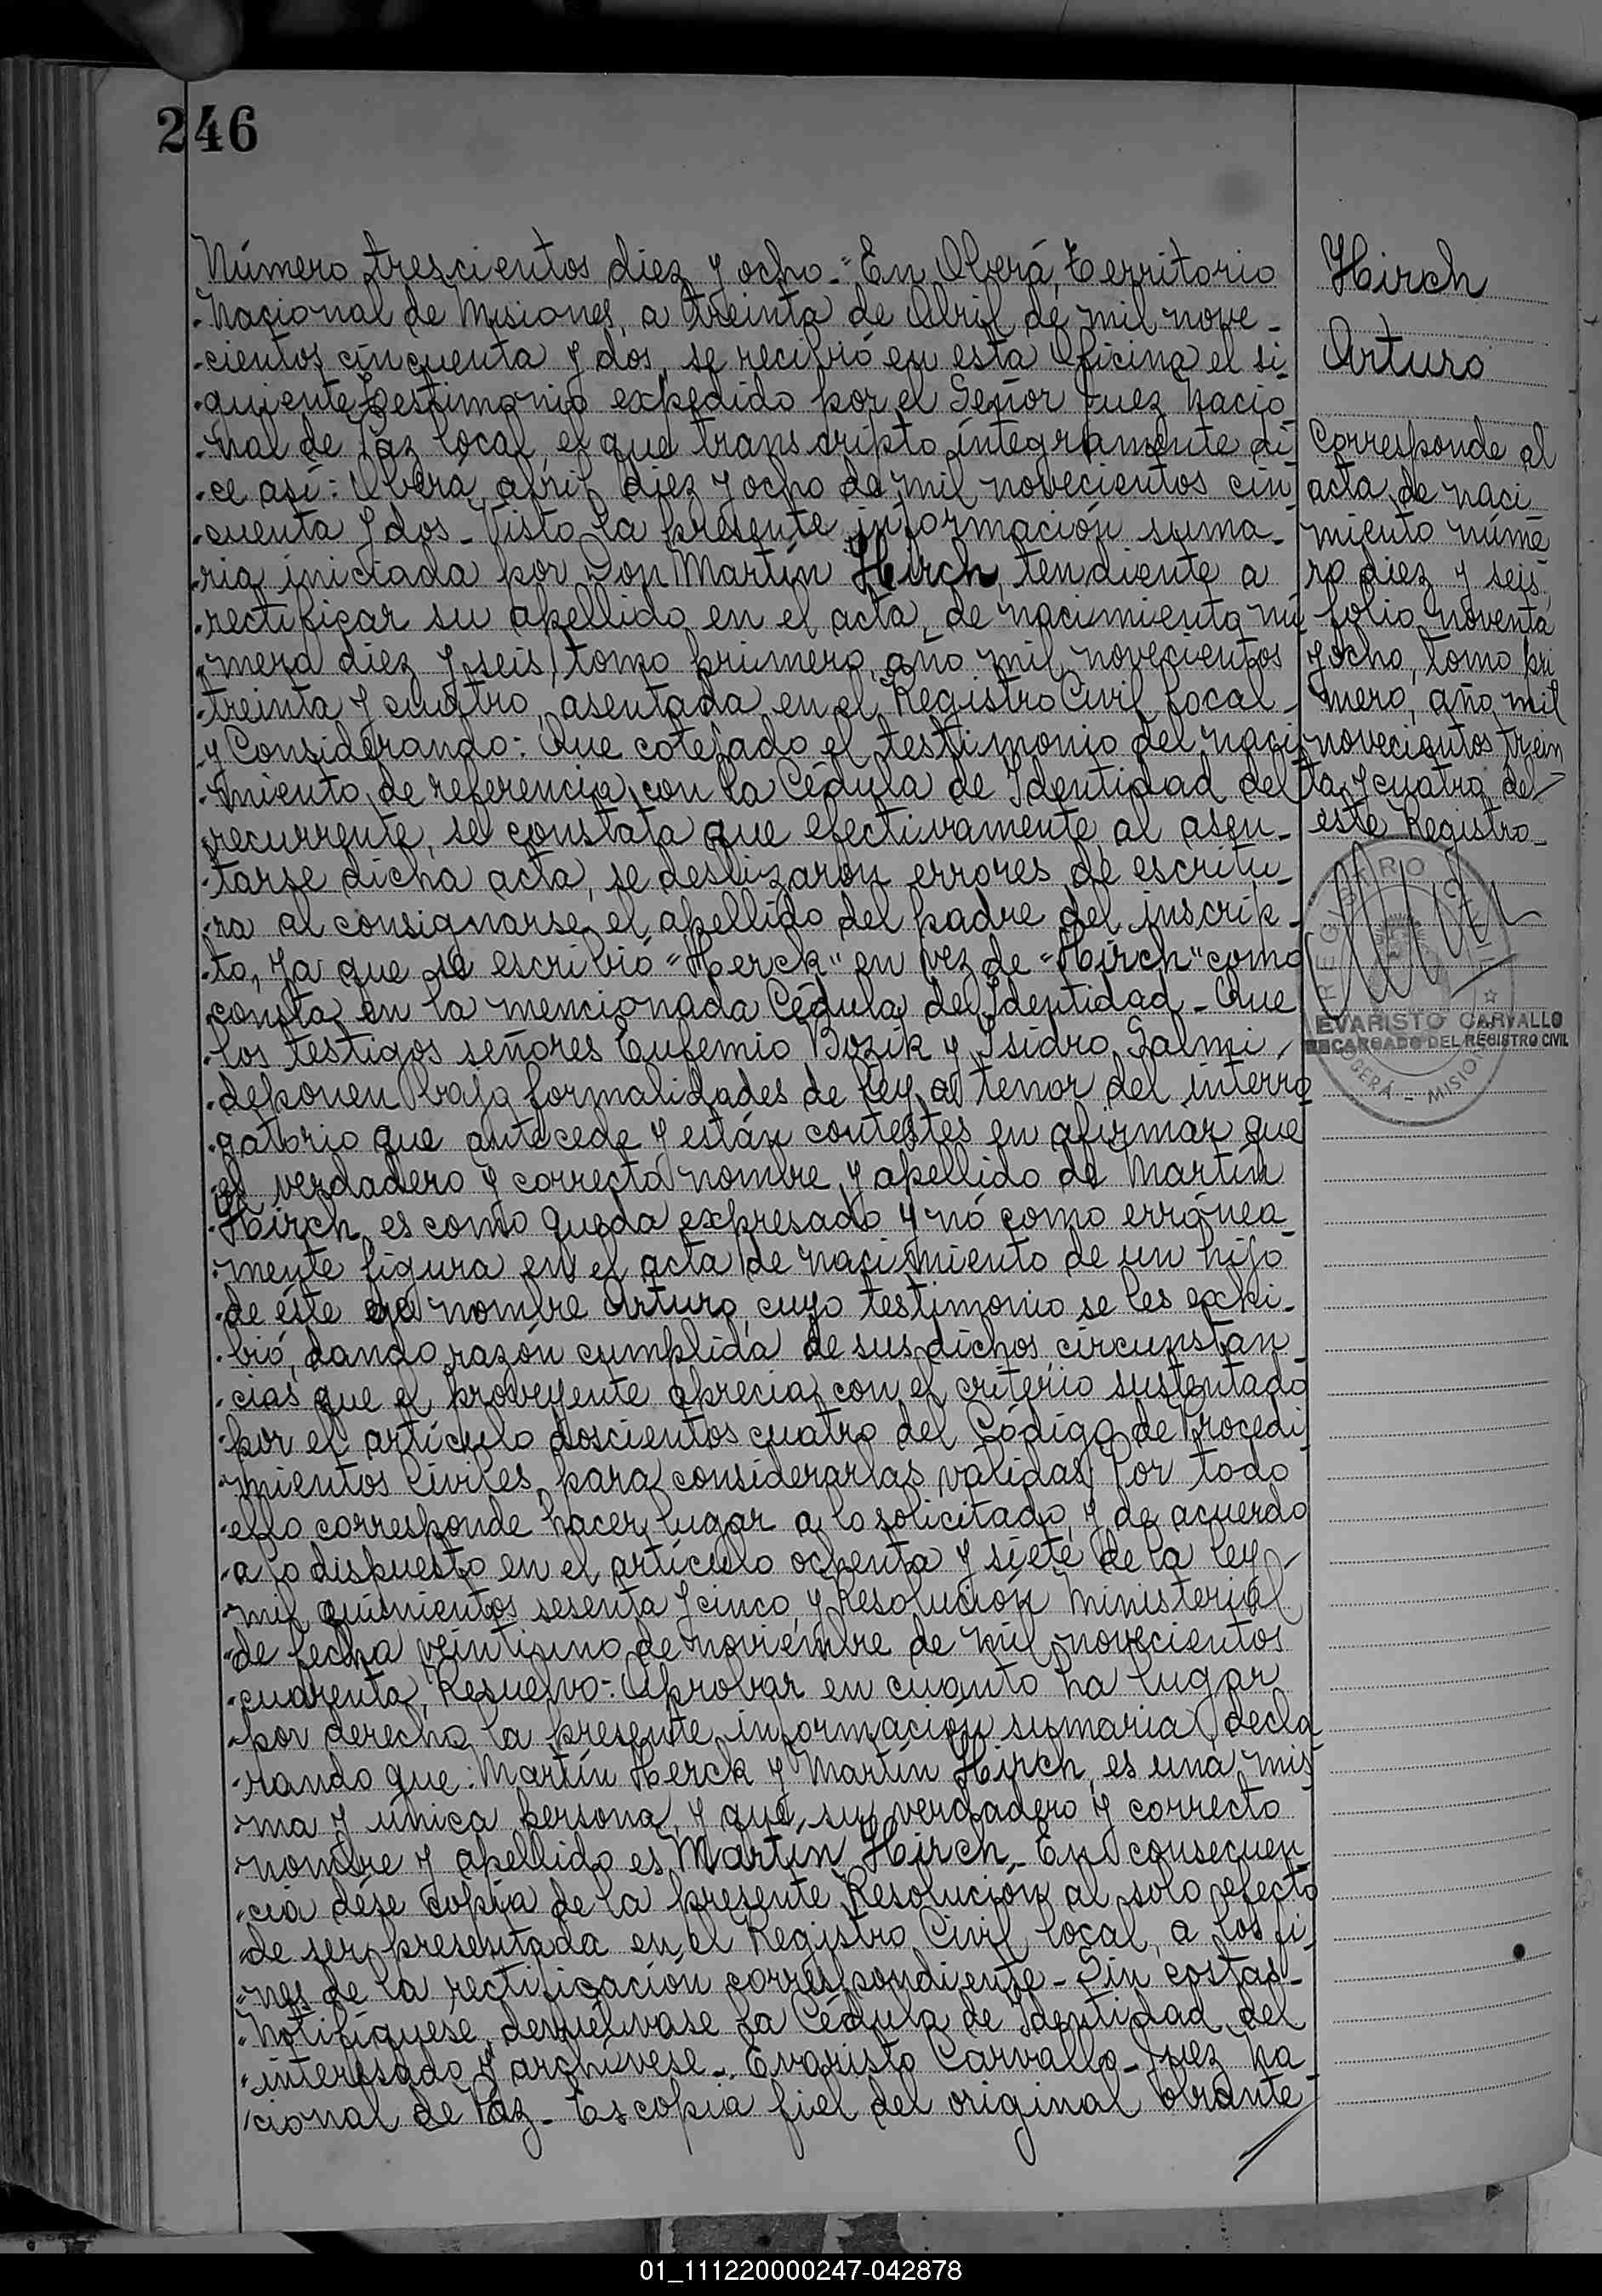 246
Número trescientos diez y ocho.- En Oberá, Territorio
Nacional de Misiones, a treinta de Abril de mil nove-
cientos cincuenta y dos, se recibió en esta Oficina el si-
guiente testimonio expedido por el Señor Juez Nacio-
nal de Paz local, el que transcripto íntegramente di-
ce así: Oberá, abril diez y ocho de mil novecientos cin
cuenta y dos- Visto la presente información suma-
ria iniciada por Don Martín Hirch, tendiente a
rectificar su apellido en el acta de nacimiento nú
mero diez y seis, tomo primero, año mil novecientos
treinta y cuatro, asentada en el Registro Civil local-
y Considerando: Que cotejado el testimonio del naci
miento de referencia con la Cédula de Identidad del
recurrente, se constata que efectivamente al asen-
tarse dicha acta, se deslizaron errores de escritu-
ra al consignarse el apellido del padre del inscrip-
to, ya que se escribió "Herck" en vez de "Hirch" como
consta en la mencionada Cédula de Identidad- Que
los testigos señores Eufemio Bozik y Isidro Salmi,
deponen bajo formalidades de ley a tenor del interro
gatorio que antecede y están contestes en afirmar que
el verdadero y correcto nombre y apellido de Martín
Hirch, es como queda expresado y nó como errónea-
mente figura en el acta de nacimiento de un hijo
de éste de nombre Arturo, cuyo testimonio se les exhi-
bió, dando razón cumplida de sus dichos, circunstan-
cias que el proveyente aprecia con el criterio sustentado
por el artículo doscientos cuatro del Código de Procedi
mientos Civiles, para considerarlas válidas, Por todo
ello corresponde hacer lugar a lo solicitado, y de acuerdo
a lo dispuesto en el artículo ochenta y siete de la ley
mil quinientos sesenta y cinco, y Resolución Ministerial
de fecha veintiuno de noviembre de mil novecientos
cuarenta, Resuelvo: Aprobar en cuanto ha lugar
por derecho la presente información sumaria, decla
rando que: Martín Herck y Martín Hirch, es una mis
ma y única persona, y que, su verdadero y correcto
nombre y apellido es Martín Hirch- En consecuen-
cia dése copia de la presente Resolución al solo efecto
de ser presentada en el Registro Civil local, a los fi-
nes de la rectificación correspondiente- Sin costas-
Notifíquese, devuélvase la Cédula de Identidad del
interesado y archívese- Evaristo Carvallo- Juez Na
cional de Paz- Es copia fiel del original obrante
Hirch
Arturo
Corresponde al
acta de naci
miento núme
ro diez y seis,
folio noventa
y ocho, tomo pri
mero, año mil
novecientos trein
ta y cuatro del
este Registro-
REGISTRO CIVIL
EVARISTO CARVALLO
ENCARGADO DEL REGISTRO CIVIL
OBERÁ - MISIONES
01_111220000247-042878